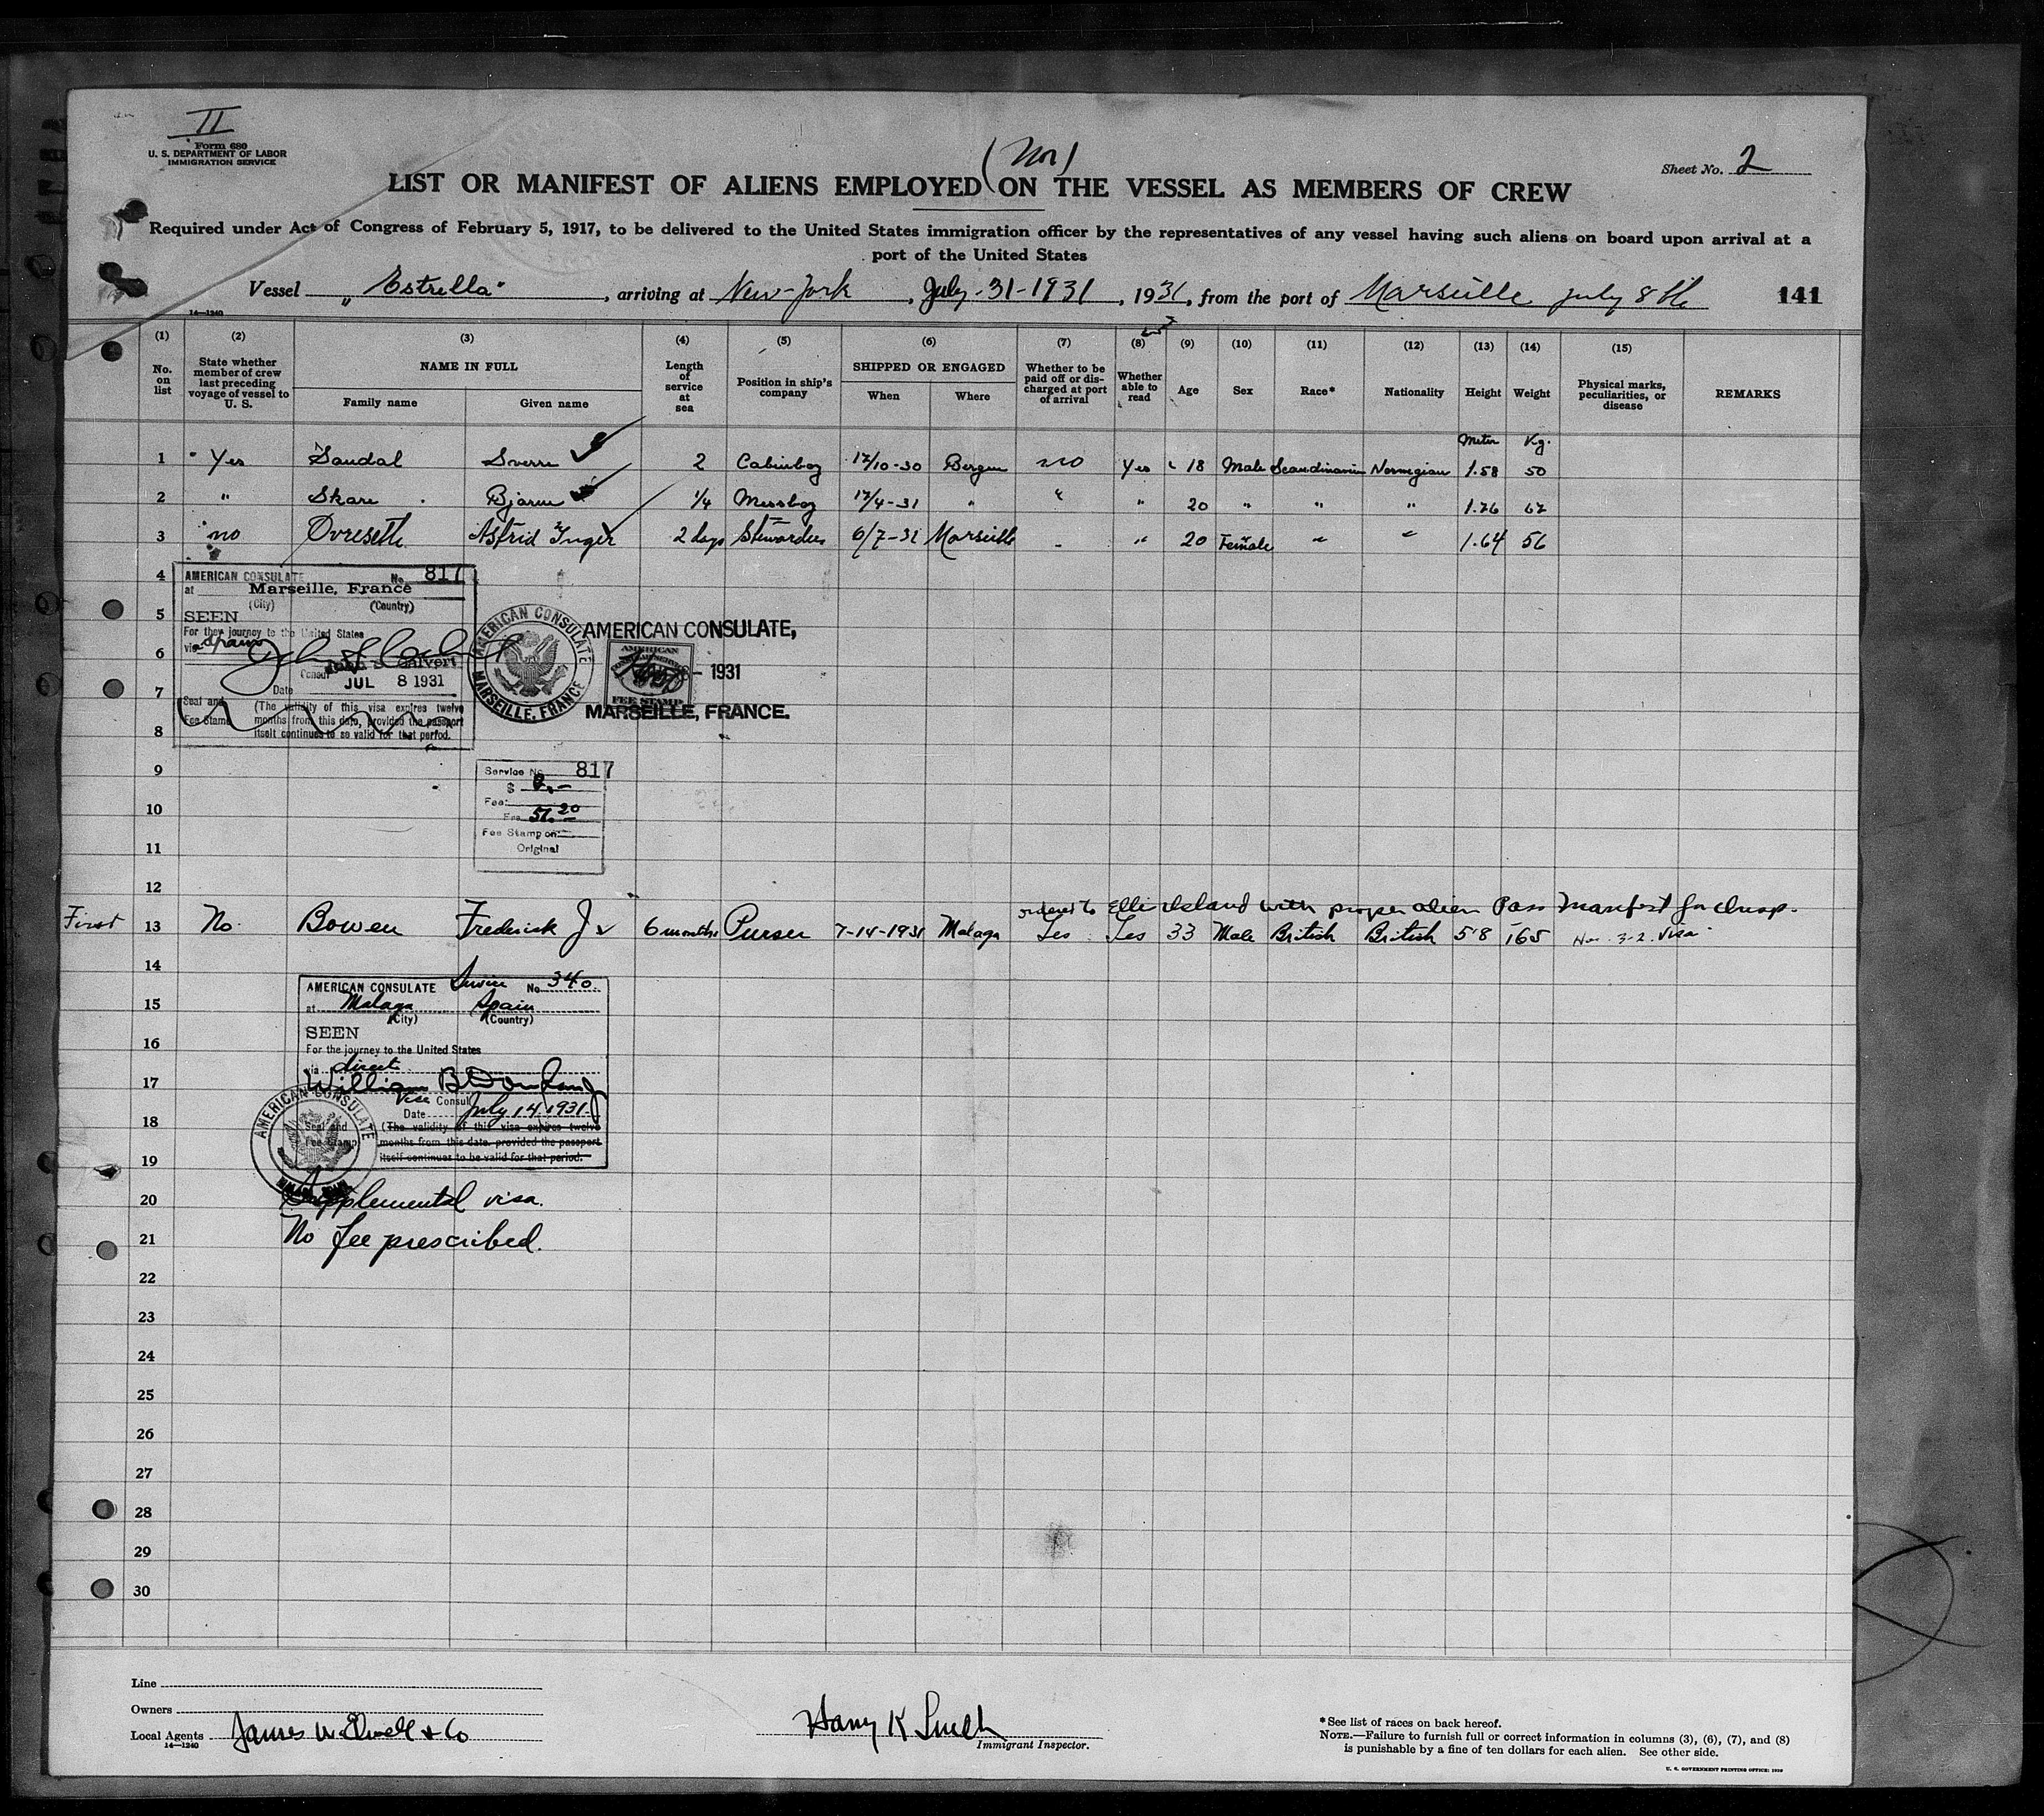 II
Form 680
U. S. DEPARTMENT OF LABOR
IMMIGRATION SERVICE
(Nor)
Sheet No. 2
LIST OR MANIFEST OF ALIENS EMPLOYED ON THE VESSEL AS MEMBERS OF CREW
Required under Act of Congress of February 5, 1917, to be delivered to the United States immigration officer by the representatives of any vessel having such aliens on board upon arrival at a
port of the United States
Vessel „Estrella", arriving at New-York, July-31-1931, 1931, from the port of Marseille July 8th 141
14—1240
(1) (2) (3) (4) (5) (6) (7) (8) (9) (10) (11) (12) (13) (14) (15)
No. on list
State whether member of crew last preceding voyage of vessel to U. S.
NAME IN FULL
Family name Given name
Length of service at sea
Position in ship's company
SHIPPED OR ENGAGED
When Where
Whether to be paid off or discharged at port of arrival
Whether able to read
Age Sex Race* Nationality Height Weight
Physical marks, peculiarities, or disease
REMARKS
Meter Kg.
1 Yes Sandal Sverre 2 Cabinboy 17/10-30 Bergen no Yes 18 Male Scandinavian Norwegian 1.58 50
2 " Skare Bjarne 1/4 Messboy 17/4-31 " " " 20 " " " 1.76 67
3 no Ovreseth Astrid Inger 2 days Stewardess 6/7-31 Marseille - " 20 Female " " 1.64 56
4
5
6
7
8
9
10
11
12
AMERICAN CONSULATE No. 817
at Marseille, France
(City) (Country)
SEEN
For the journey to the United States
via Spain
John S. Calvert
Consul
Date JUL 8 1931
Seal and Fee Stamp
(The validity of this visa expires twelve
months from this date, provided the passport
itself continues to be valid for that period.
AMERICAN CONSULATE
MARSEILLE, FRANCE
AMERICAN CONSULATE,
AMERICAN
FEE STAMP
- 1931
MARSEILLE, FRANCE.
Service No. 817
$
Fee:
Frs. 51.20
Fee Stamp on
Original
ordered to Ellis Island with proper alien Pass Manifest for Insp.
First 13 No. Bowen Frederick J 6 months Purser 7-14-1931 Malaga Yes Yes 33 Male British British 5'8 165 3-2 Visa
14
15
16
17
18
19
20
21
AMERICAN CONSULATE Service No. 340.
at Malaga Spain
(City) (Country)
SEEN
For the journey to the United States
via direct
William B
Vice Consul
Date July 14 1931
Seal and Fee Stamp
(The validity of this visa expires twelve
months from this date, provided the passport
itself continues to be valid for that period.
AMERICAN CONSULATE
Supplemental visa.
No fee prescribed.
22
23
24
25
26
27
28
29
30
Line
Owners
Local Agents James McElwell & Co
14—1240
Harry K Smith
Immigrant Inspector.
*See list of races on back hereof.
NOTE.—Failure to furnish full or correct information in columns (3), (6), (7), and (8)
is punishable by a fine of ten dollars for each alien. See other side.
U. S. GOVERNMENT PRINTING OFFICE: 1930